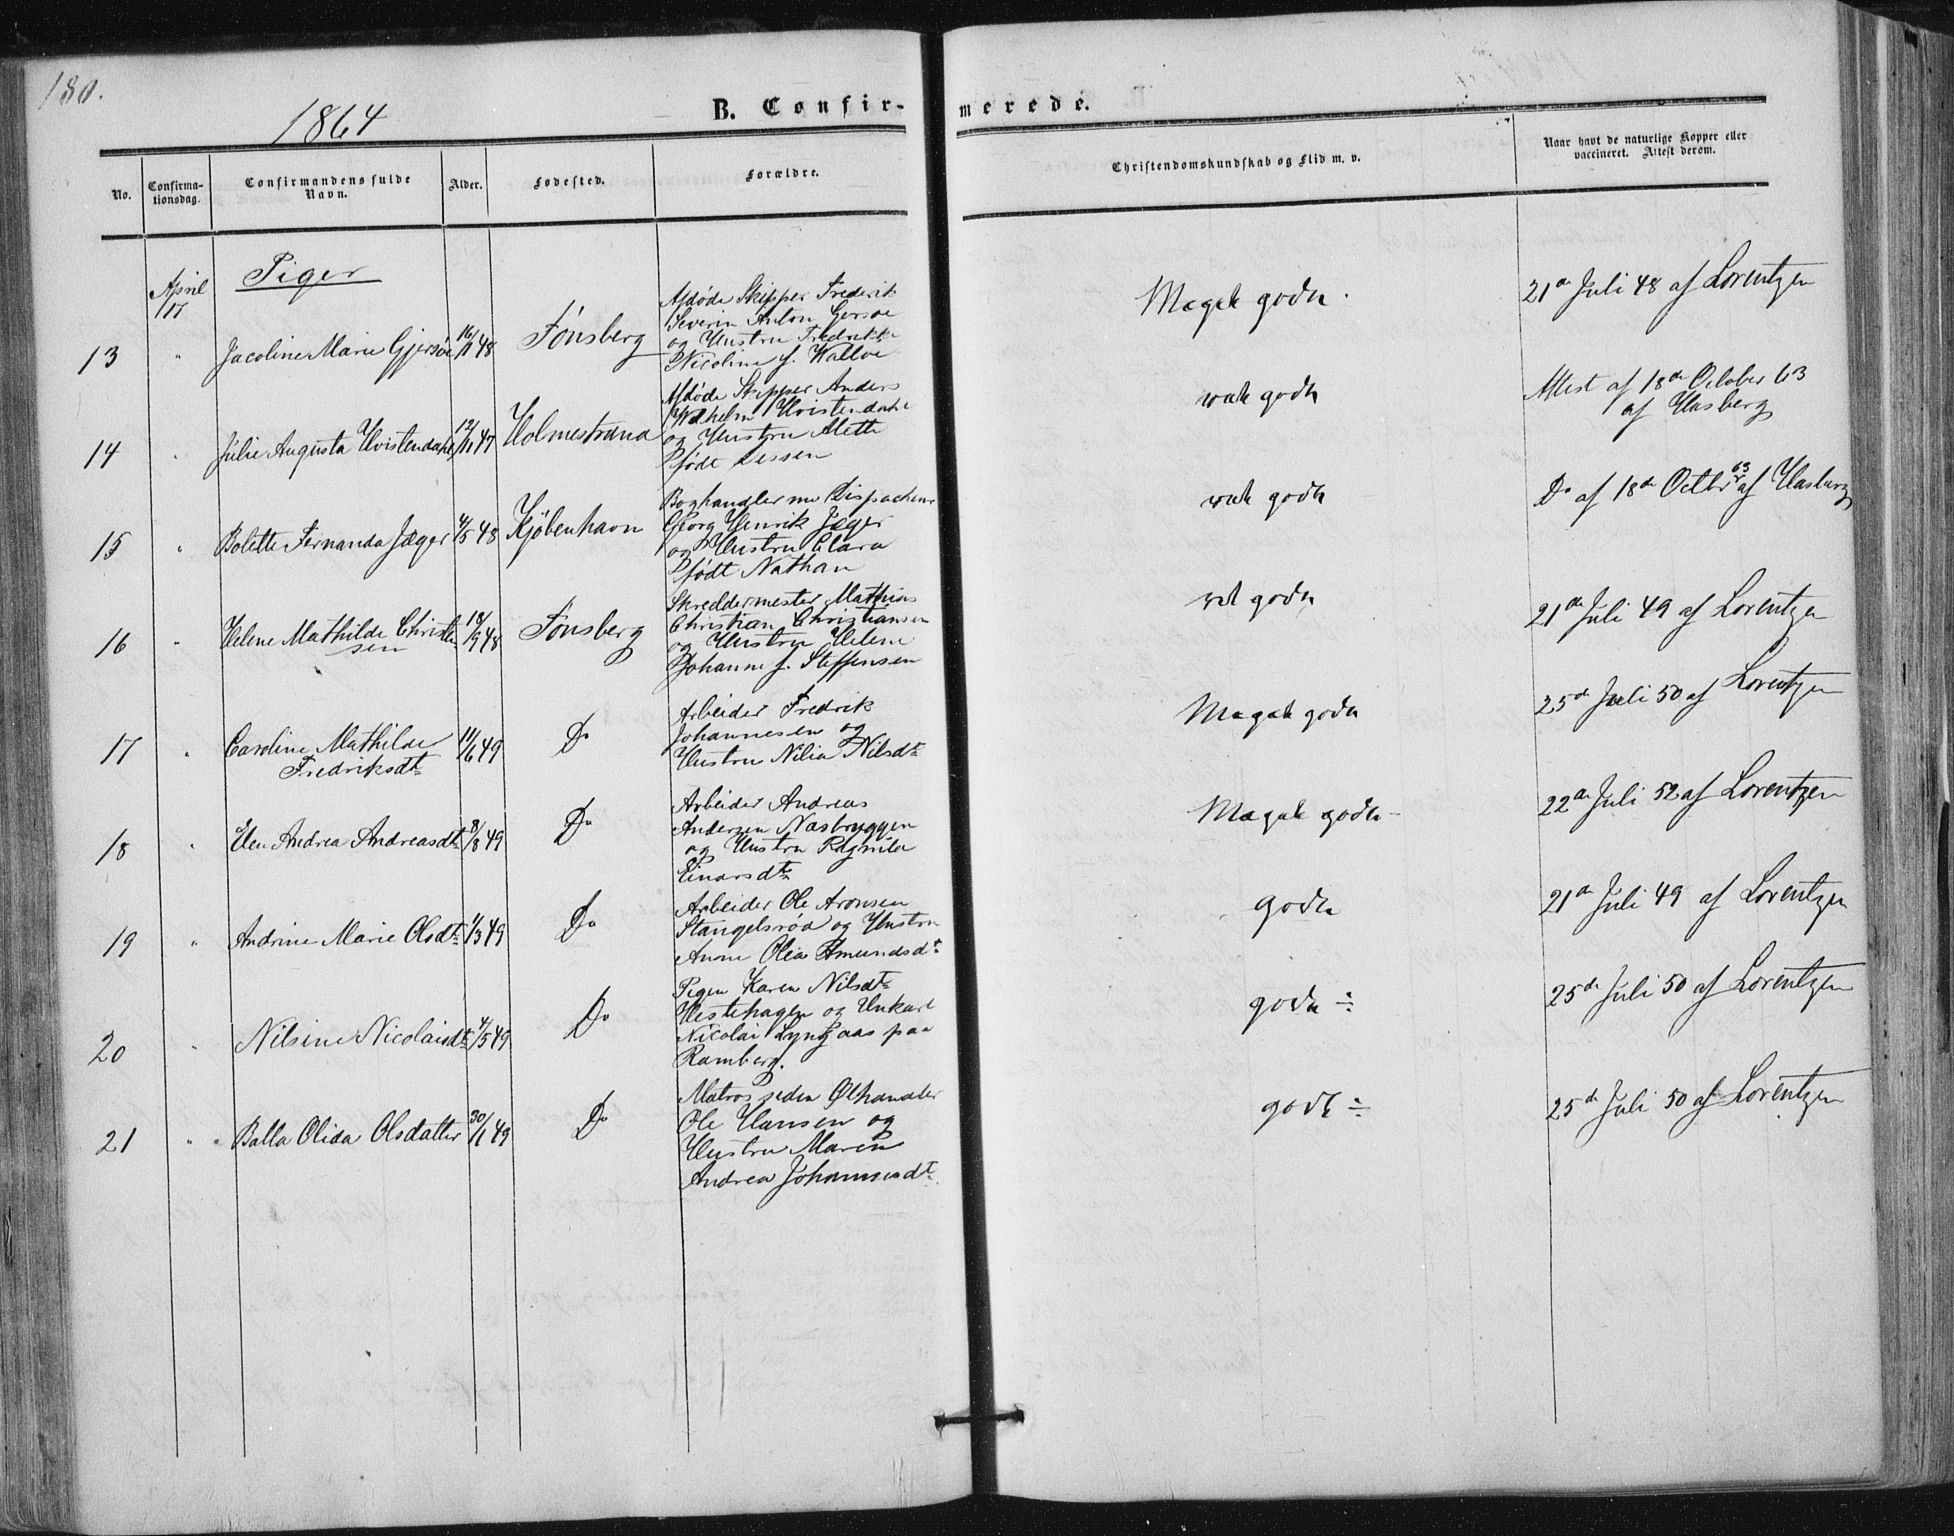 180.
1864
B. Confir-
merede.
No.
Confirma-
tionsdag.
Confirmandens fulde
Navn.
Alder.
Fødested.
Forældre.
Christendomskundskab og Flid m. v.
Naar havt de naturlige Kopper eller
vaccineret. Attest derom.
April
17
Piger
13 " Jacoline Marie Gjersøe 16/11 48 Tønsberg
Afdøde Skipper Frederik
Severin Anton Gersøe
og Hustru Fredrikke
Nicoline f. Walløe
Meget godt.
21de Juli 48 af Lorentzen
14 " Julie Augusta Hvistendahl 12/11 47 Holmestrand
Afdøde Skipper Anders
Wilhelm Hvistendahl
og Hustru Alette
født Dessen
godt
Attest af 18de October 63
af Hasberg
15 " Bolette Fernanda Jæger 4/5 48 Kjøbenhavn
Boghandler nu Dispacheur
Georg Henrik Jæger
og Hustru Clara
født Nathan
godt
Do af 18de Octbr 63 af Hasberg
16 " Helene Mathilde Christen
sen 18/9 48 Tønsberg
Skreddermester Mathias
Christian Christiansen
og Hustru Helene
Johanne f. Steffensen
godt
21de Juli 49 af Lorentzen
17 " Caroline Mathilde
Fredriksdt 11/6 49 Do
Arbeider Fredrik
Johannesen og
Hustru Nilia Nilsdt
Meget godt
25de Juli 50 af Lorentzen
18 " Elen Andrea Andreasdt 8/8 49 Do
Arbeider Andreas
Andersen Næsbryggen
og Hustru Ragnila
Einarsdt
Meget godt -
22de Juli 52 af Lorentzen
19 " Andrine Marie Olsdt 1/3 49 Do
Arbeider Ole Aronsen
Stangelsrød og Hustru
Anne Olea Amundsdt
godt
21de Juli 49 af Lorentzen
20 " Nilsine Nicolaisdt 4/5 49 Do
Pigen Karen Nilsdt
Vestehagen og Unkarl
Nicolai Lyngaas paa
Ramberg.
godt ÷
25de Juli 50 af Lorentzen
21 " Balla Olida Olsdatter 30/1 49 Do
Matros siden Ølhandler
Ole Hansen og
Hustru Maren
Andrea Johannesdt
godt ÷
25de Juli 50 af Lorentzen